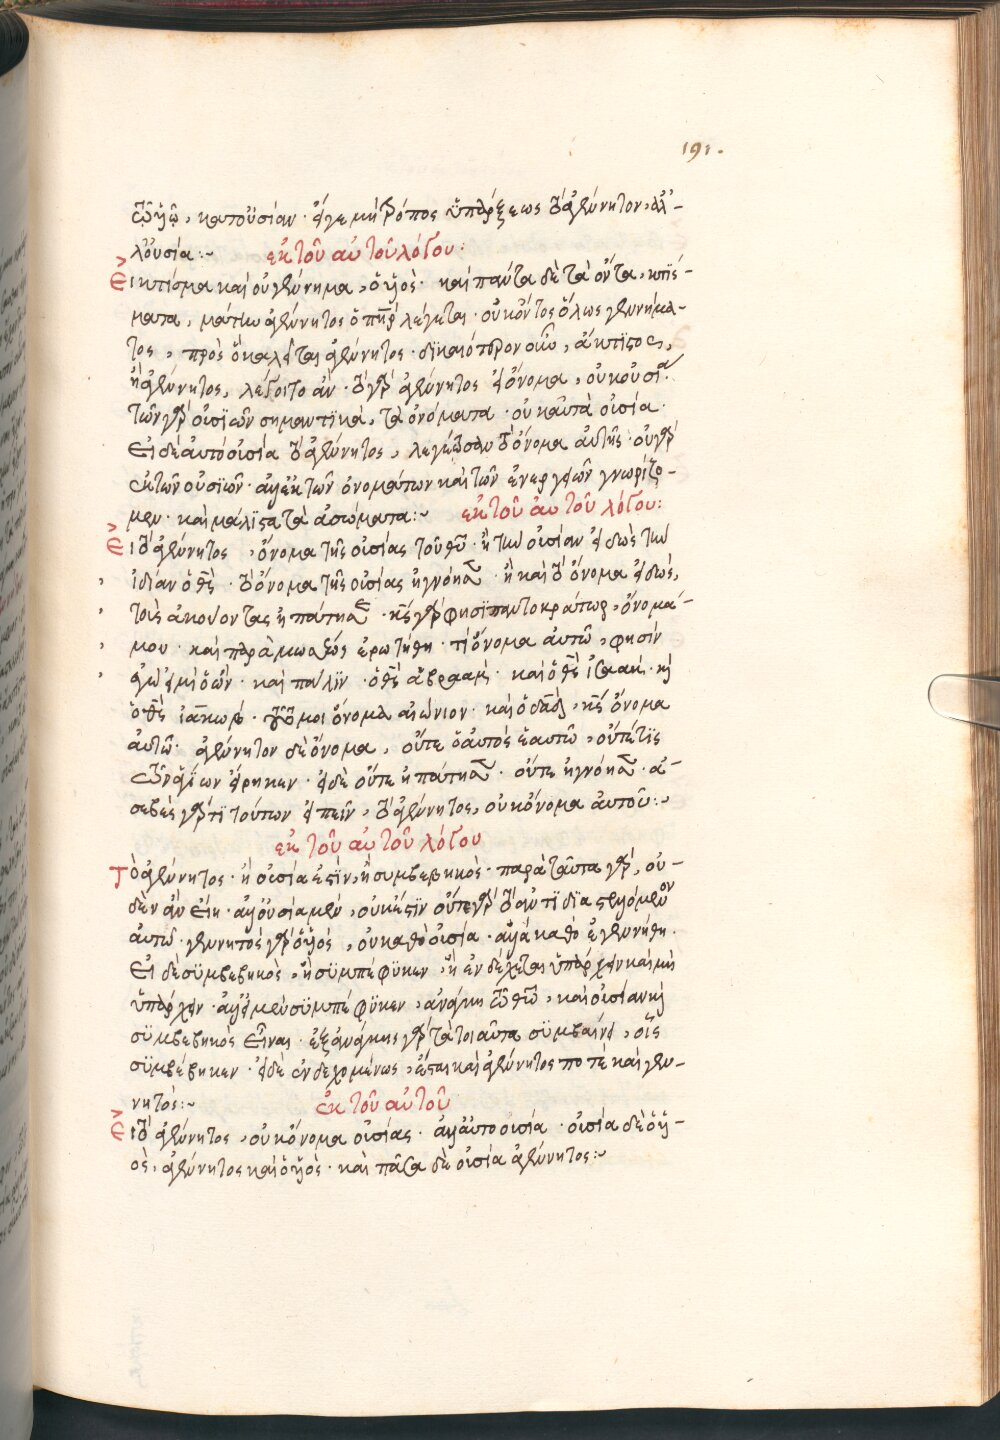 191.
τῷ υἱῷ, κατ' οὐσίαν. εἴγε μὴ τρόπος ὑπάρξεως τὸ ἀγέννητον, ἀλ-
λ' οὐσία:~ ἐκ τοῦ αὐτοῦ λόγου:
Εἰ κτίσμα καὶ οὐ γέννημα, ὁ υἱός. καὶ πάντα δὲ τὰ ὄντα, κτίσ-
ματα, μάτην ἀγέννητος ὁ πατὴρ λέγεται. οὐκ ὄντος ὅλως γεννήμα-
τος, πρὸς ὃ καλεῖται ἀγέννητος. δικαιότερον οὖν, ἄκτιστος,
ἢ ἀγέννητος, λέγοιτο ἄν. τὸ γὰρ ἀγέννητος εἰ ὄνομα, οὐκ οὐσία.
τῶν γὰρ οὐσιῶν σημαντικά, τὰ ὀνόματα. οὐκ αὐτὰ οὐσία.
Εἰ δὲ αὐτὸ οὐσία τὸ ἀγέννητος, λεγέτωσαν τὸ ὄνομα αὐτῆς. οὐ γὰρ
ἐκ τῶν οὐσιῶν. ἀλλ' ἐκ τῶν ὀνομάτων καὶ τῶν ἐνεργειῶν γνωρίζο-
μεν. καὶ μάλιστα τὰ ἀσώματα:~ ἐκ τοῦ αὐτοῦ λόγου:
Εἰ τὸ ἀγέννητος, ὄνομα τῆς οὐσίας τοῦ θεοῦ. ἢ τὴν οὐσίαν εἰδὼς τὴν
ἰδίαν ὁ θεὸς. τὸ ὄνομα τῆς οὐσίας ἠγνόησεν. ἢ καὶ τὸ ὄνομα εἰδώς,
τοὺς ἀκούοντας ἠπάτησεν. κύριος γάρ φησι παντοκράτωρ, ὄνομά
μου. καὶ παρὰ μωσέως ἐρωτηθεὶς. τί ὄνομα αὐτῷ, φησίν
ἐγώ εἰμι ὁ ὤν. καὶ πάλιν. ὁ θεὸς ἀβραάμ. καὶ ὁ θεὸς ἰσαάκ. καὶ
ὁ θεὸς ἰακώβ. τοῦτό μοι ὄνομα αἰώνιον. καὶ ὁ δαδ, κύριος ὄνομα
αὐτῷ. ἀγέννητον δὲ ὄνομα, οὔτε ὁ αὐτὸς ἑαυτῷ, οὔτέ τις
τῶν ἁγίων εἴρηκεν. εἰ δὲ οὔτε ἠπάτησεν. οὔτε ἠγνόησεν. ἀ-
σεβὲς γάρ τι τούτων εἰπεῖν, τὸ ἀγέννητος, οὐκ ὄνομα αὐτοῦ:~
ἐκ τοῦ αὐτοῦ λόγου
Τὸ ἀγέννητος. ἢ οὐσία ἐστὶν, ἢ συμβεβηκός. παρὰ ταῦτα γὰρ, οὐ-
δὲν ἂν εἴη. ἀλλ' οὐσία μέν, οὐκ ἔστιν οὔτε γὰρ τὸ ἀντιδιαστελλόμενον
αὐτῷ. γεννητὸς γὰρ ὁ υἱός, οὐ καθὸ οὐσία. ἀλλὰ καθὸ ἐγεννήθη.
Εἰ δὲ συμβεβηκός, ἢ συμπέφυκεν, ἢ ἐνδέχεται ὑπάρχειν καὶ μὴ
ὑπάρχειν. ἀλλ' εἰ μὲν συμπέφυκεν, ἀνάγκη τῷ θεῷ, καὶ οὐσίαν καὶ
συμβεβηκὸς εἶναι. ἐξ ἀνάγκης γὰρ τὰ τοιαῦτα συμβαίνει, οἷς
συμβέβηκεν. εἰ δὲ ἐνδεχομένως, ἔσται καὶ ἀγέννητος ποτε καὶ γεν-
νητός:~ ἐκ τοῦ αὐτοῦ
Εἰ τὸ ἀγέννητος, οὐκ ὄνομα οὐσίας. ἀλλ' αὐτοουσία. οὐσία δὲ ὁ υἱ-
ός, ἀγέννητος καὶ ὁ υἱός. καὶ πᾶσα δὲ οὐσία ἀγέννητος:~